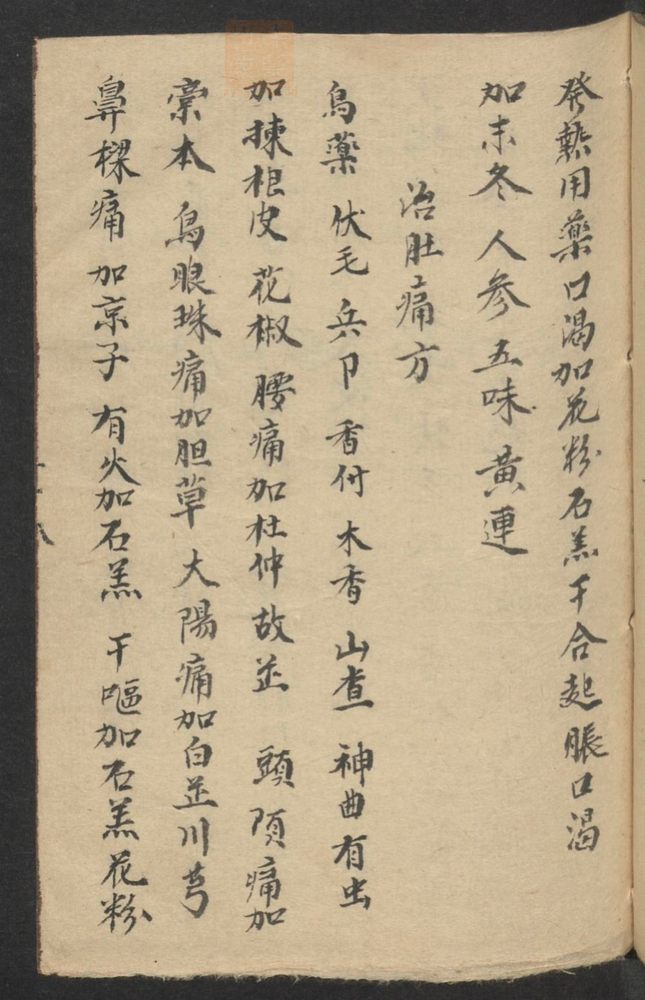 發熱用藥口渴加花粉石羔干合起脹口渴
加末冬人參五味黃連
治肚痛方
烏藥伏毛兵卩香付木香山查神曲有虫
加揀根皮花椒腰痛加杜仲故芷頭頂痛加
藁本烏眼珠痛加胆草大陽痛加白芷川芎
鼻樑痛加京子有火加石羔干嘔加石羔花粉